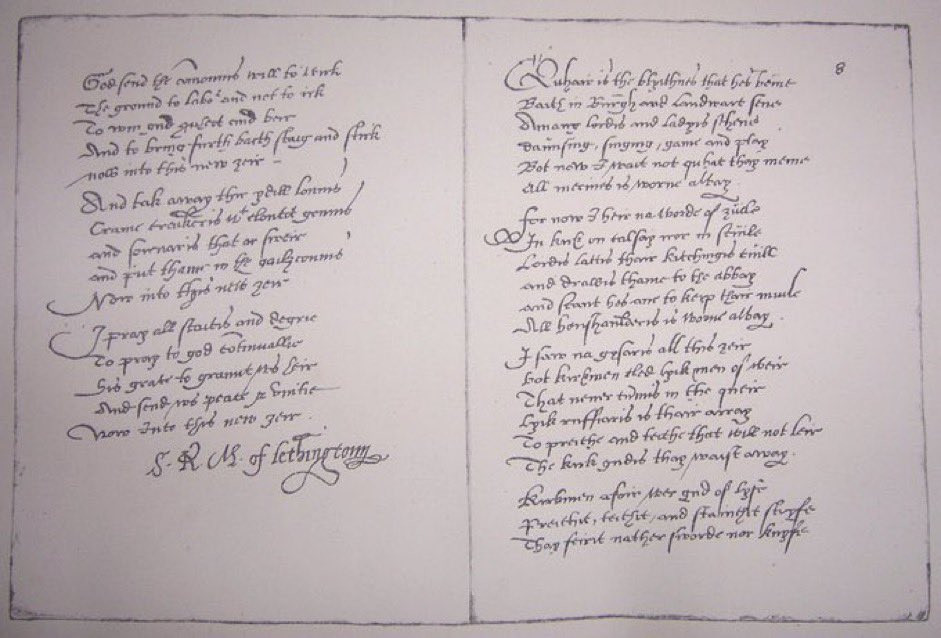 God send the comonnis will to wirk
The ground to labor and not to irk
To win gud quheet and beir
And to bring furth baith staig and stirk
now into this new zeir
And tak away thir ydill lounis
Crame with clontit gounis
and sornaris that ar sweir
and put thame in the gailyeounis
Now into this new zeir
I pray all staitis and degrie
To pray to god continuallie
his grace to graunt ws heir
And send ws peace &
Now Into this new zeir.
S. R M. of lethingtoun
8
Quhair is the blyithnes that hes beine
Baith in Burgh and Landwart sene
Amang lordis and ladyis schene
daunsing, singing, game and play
Bot now I wait not quhat thay meine
All mirrines is worne away
For now I heir na worde of zuile
In kirk on calsay nor in scuile
Lordis lattis thair kitchingis cuill
and drawis thame to the abbay
and scant hes ane to keip thair muile
All houshauldaris is worne away.
I saw na gysaris all this zeir
bot kirkmen cled lyik men of weir
That never cumis in the queir
Lyik ruffiaris is thair array
To preiche and teiche that will not leir
The kirk gudis thay waist away.
Kirkmen afoir wer gud of lyfe
Preichit, teichit, and stainchit stryfe
Thay feirit nather sworde nor knyfe